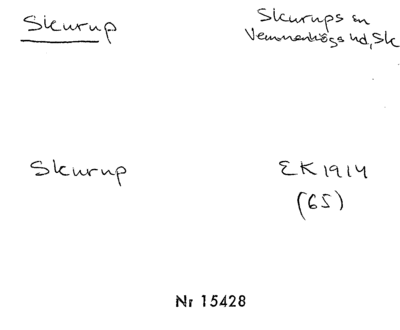 Skurup
Skurups sn
Vemmenhögs hd, Sk
Skurup
EK 1914
(65)
Nr 15428